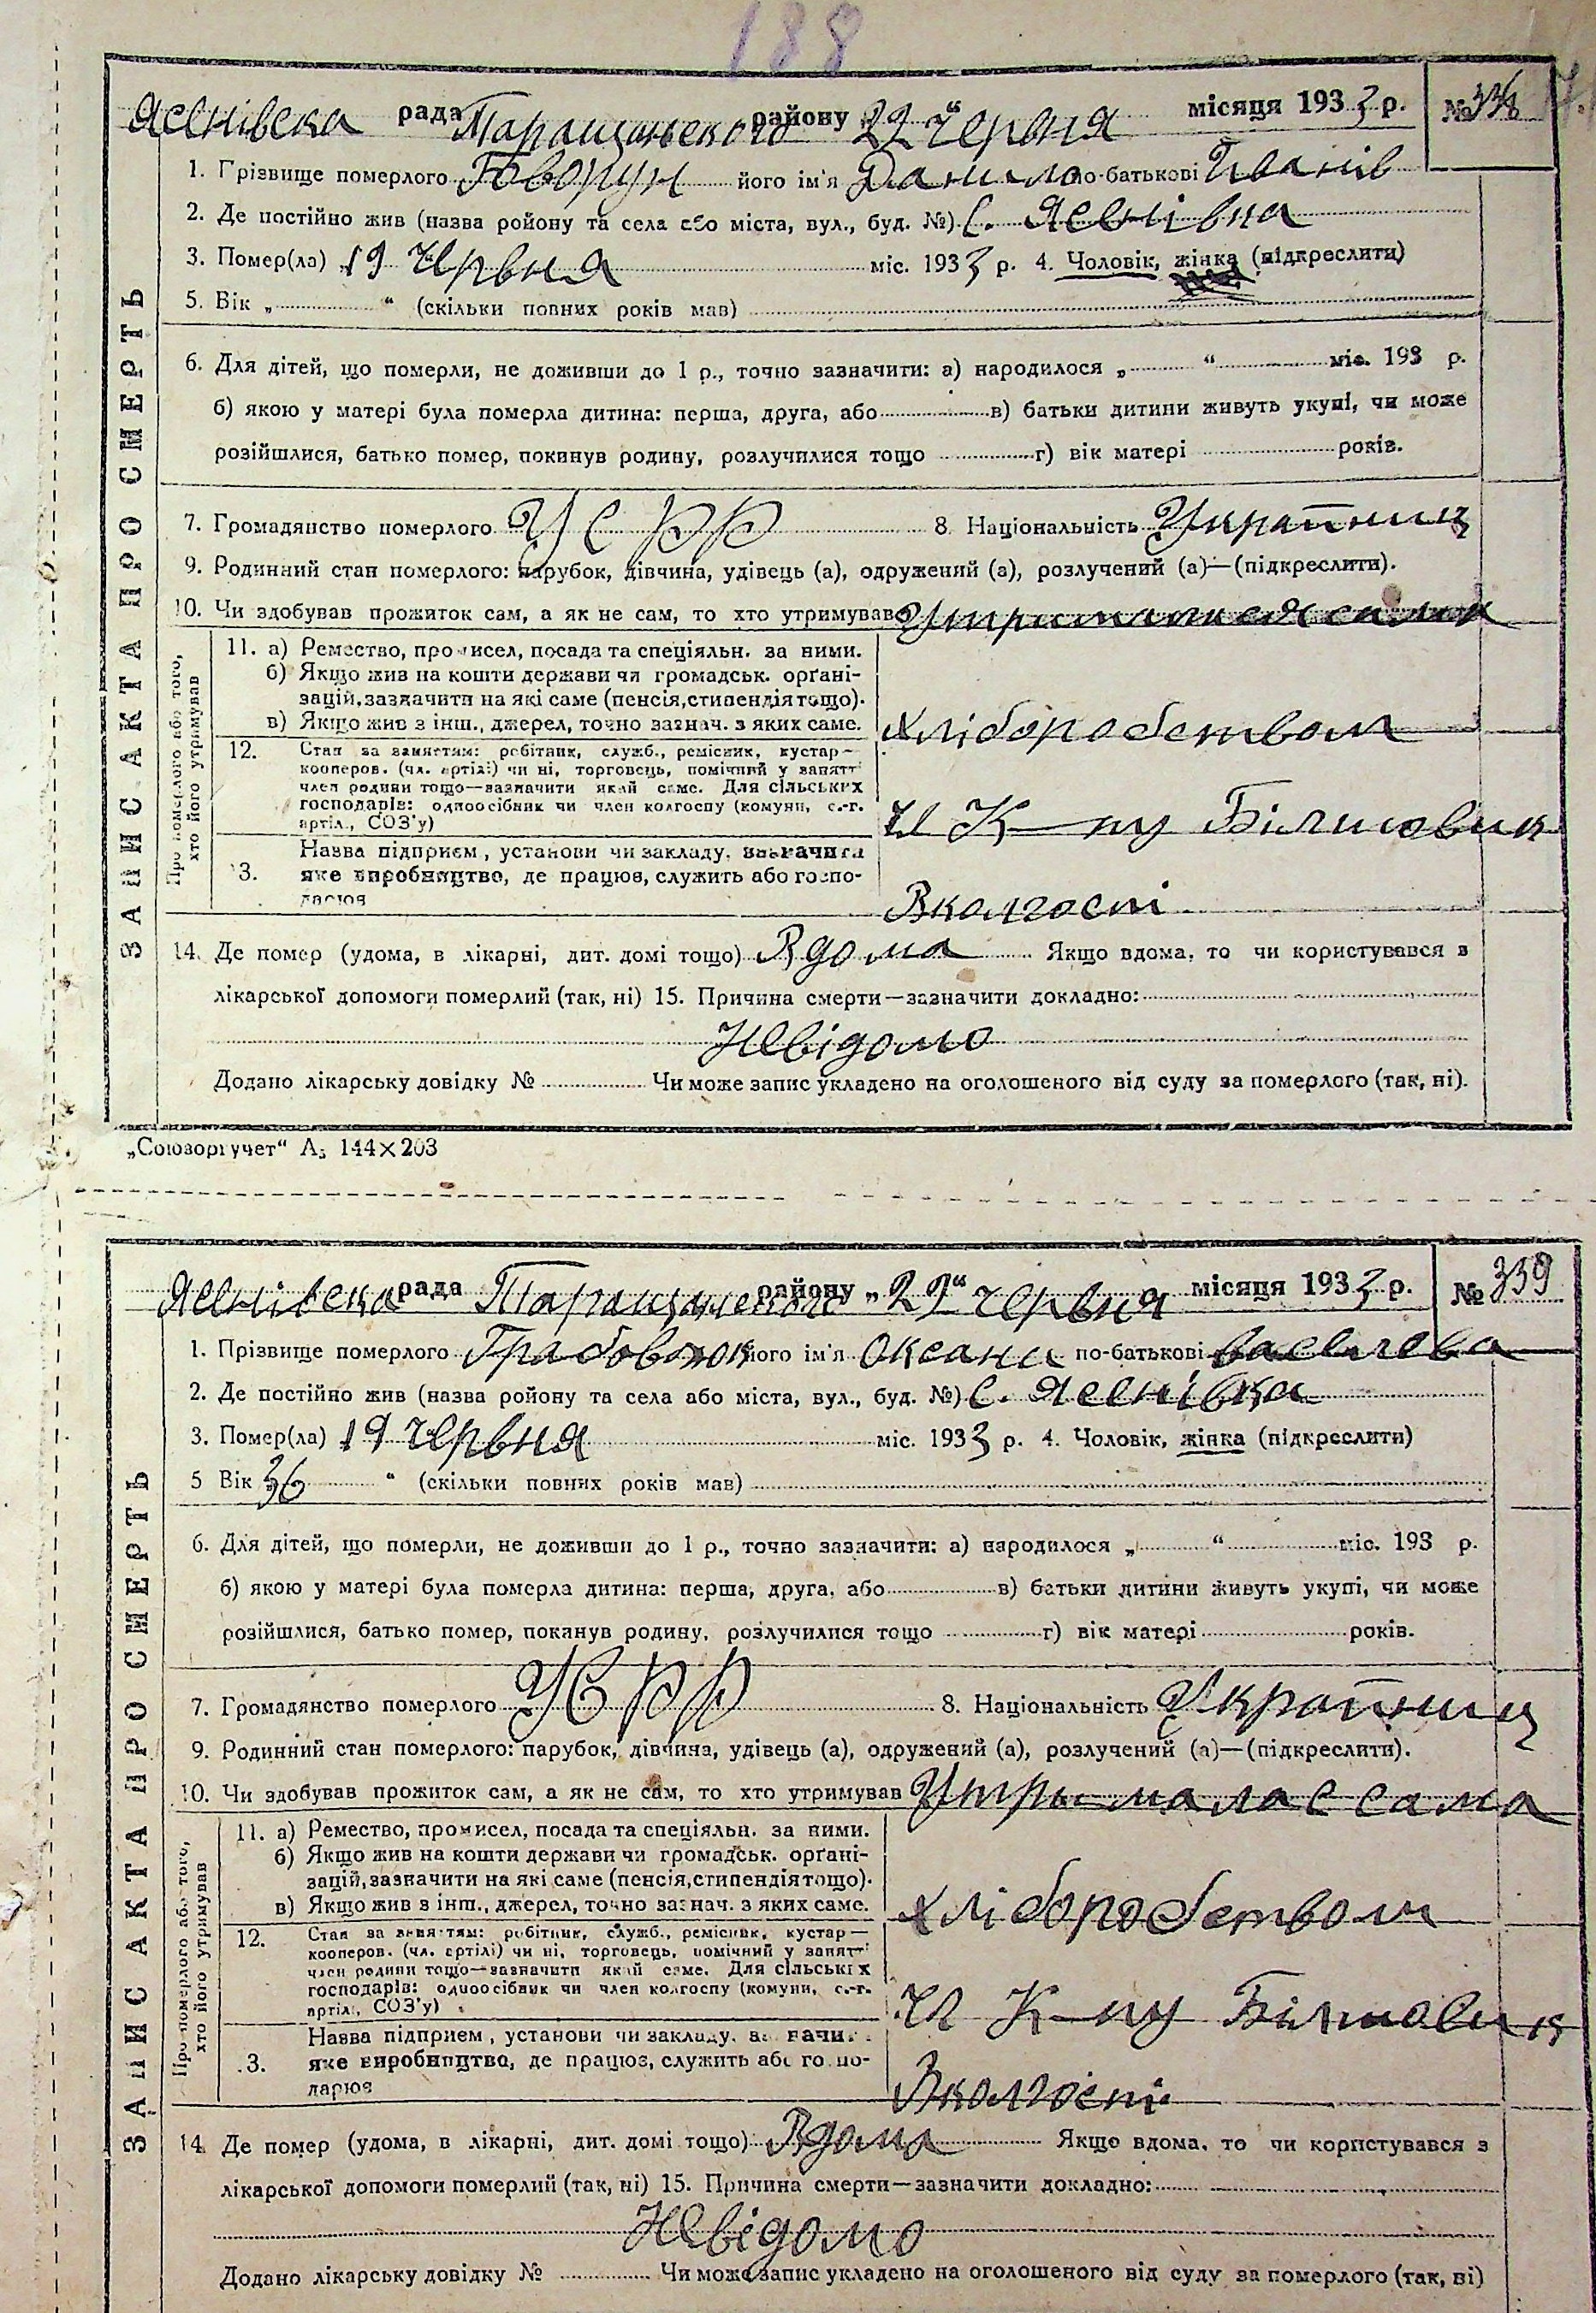 188
Ясенівська рада Таращанського району „22“ червня місяця 1933 р. № 338
1. Прізвище померлого Говорун його ім'я Данило по-батькові Іванів
2. Де постійно жив (назва ройону та села або міста, вул., буд. №) С. Ясенівка
3. Помер(ла) „19 червня міс. 1933 р. 4. Чоловік, жінка (підкреслити)
5. Вік „ “ (скільки повних років мав)
6. Для дітей, що померли, не доживши до 1 р., точно зазначити: а) народилося „ “ міс. 193 р.
б) якою у матері була померла дитина: перша, друга, або в) батьки дитини живуть укупі, чи може
розійшлися, батько помер, покинув родину, розлучилися тощо г) вік матері років.
7. Громадянство померлого УСРР 8. Національність Українец
9. Родинний стан померлого: парубок, дівчина, удівець (а), одружений (а), розлучений (а)—(підкреслити).
10. Чи здобував прожиток сам, а як не сам, то хто утримував
ЗАПИС АКТА ПРО СМЕРТЬ
Про померлого або того,
хто його утримував
11. а) Ремество, промисел, посада та спеціяльн. за ними.
б) Якщо жив на кошти держави чи громадськ. органі-
зацій, зазначити на які саме (пенсія, стипендія тощо).
в) Якщо жив з інш., джерел, точно зазнач. з яких саме.
хліборобством
12. Стан за заняттям: робітник, служб., ремісник, кустар—
кооперов. (чл. артілі) чи ні, торговець, помічний у занятті
член родини тощо—зазначити який саме. Для сільських
господарів: одноосібник чи член колгоспу (комуни, с.-г.
артіл., СОЗ'у)
Чл К-пу Більшовик
13. Назва підприєм, установи чи закладу, зазначити
яке виробництво, де працює, служить або госпо-
дарює
В колгоспі
14. Де помер (удома, в лікарні, дит. домі тощо) Вдома Якщо вдома, то чи користувався з
лікарської допомоги померлий (так, ні) 15. Причина смерти—зазначити докладно:
Невідомо
Додано лікарську довідку № Чи може запис укладено на оголошеного від суду за померлого (так, ні).
„Союзоргучет“ А5 144×203
Ясенівська рада Таращанського району „22“ червня місяця 1933 р. № 339
1. Прізвище померлого його ім'я Оксана по-батькові Василева
2. Де постійно жив (назва ройону та села або міста, вул., буд. №) С. Ясенівка
3. Помер(ла) „19 червня міс. 1933 р. 4. Чоловік, жінка (підкреслити)
5 Вік „36 “ (скільки повних років мав)
6. Для дітей, що померли, не доживши до 1 р., точно зазначити: а) народилося „ “ міс. 193 р.
б) якою у матері була померла дитина: перша, друга, або в) батьки дитини живуть укупі, чи може
розійшлися, батько помер, покинув родину, розлучилися тощо г) вік матері років.
7. Громадянство померлого УСРР 8. Національність Українец
9. Родинний стан померлого: парубок, дівчина, удівець (а), одружений (а), розлучений (а)—(підкреслити).
10. Чи здобував прожиток сам, а як не сам, то хто утримував Утрымалас сама
ЗАПИС АКТА ПРО СМЕРТЬ
Про померлого або того,
хто його утримував
11. а) Ремество, промисел, посада та спеціяльн. за ними.
б) Якщо жив на кошти держави чи громадськ. органі-
зацій, зазначити на які саме (пенсія, стипендія тощо).
в) Якщо жив з інш., джерел, точно зазнач. з яких саме.
хліборобством
12. Стан за заняттям: робітник, служб., ремісник, кустар—
кооперов. (чл. артілі) чи ні, торговець, помічний у занятті
член родини тощо—зазначити який саме. Для сільських
господарів: одноосібник чи член колгоспу (комуни, с.-г.
артіл., СОЗ'у)
Чл К-пу Більшовик
13. Назва підприєм, установи чи закладу, зазначити
яке виробництво, де працює, служить або госпо-
дарює
В колгоспі
14. Де помер (удома, в лікарні, дит. домі тощо) Вдома Якщо вдома, то чи користувався з
лікарської допомоги померлий (так, ні) 15. Причина смерти—зазначити докладно:
Невідомо
Додано лікарську довідку № Чи може запис укладено на оголошеного від суду за померлого (так, ні)